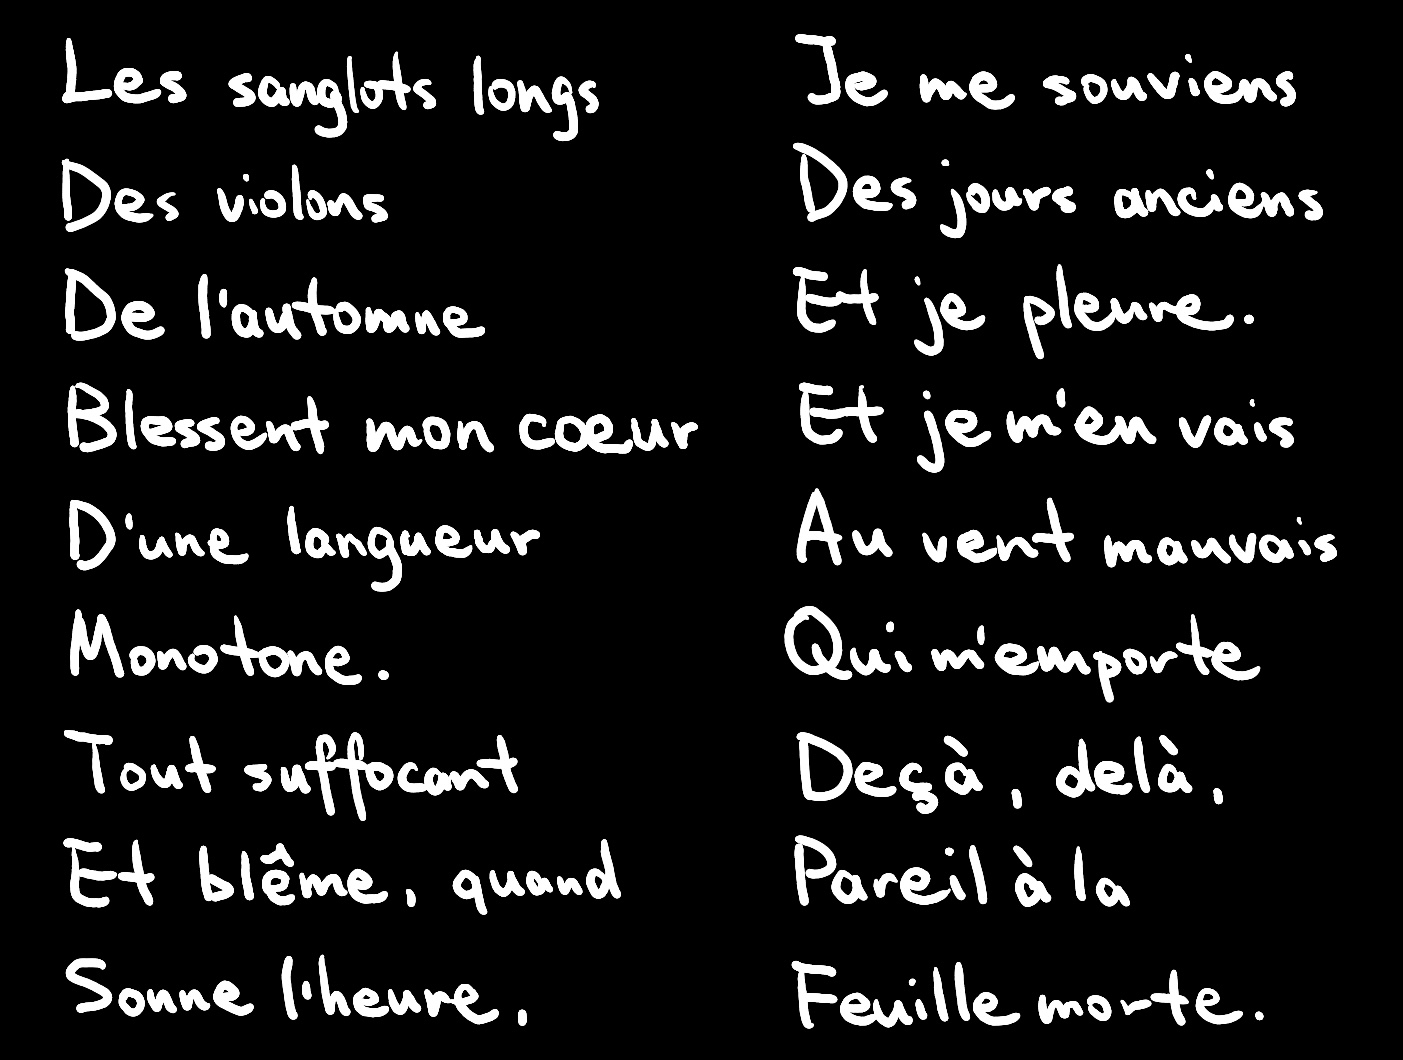 Les sanglots longs
Des violons
De l'automne
Blessent mon cœur
D'une langueur
Monotone.
Tout suffocant
Et blême, quand
Sonne l'heure,
Je me souviens
Des jours anciens
Et je pleure.
Et je m'en vais
Au vent mauvais
Qui m'emporte
Deçà, delà,
Pareil à la
Feuille morte.